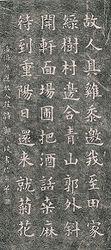 故人具雞黍邀我至田家
綠樹村邊合青山郭外斜
開軒面場圃把酒話桑麻
待到重陽日還來就菊花